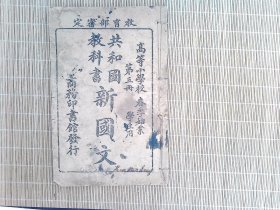 教育部審定
高等小學校
春季始業
第三冊 學生用
共和國
教科書
新國文
商務印書館發行